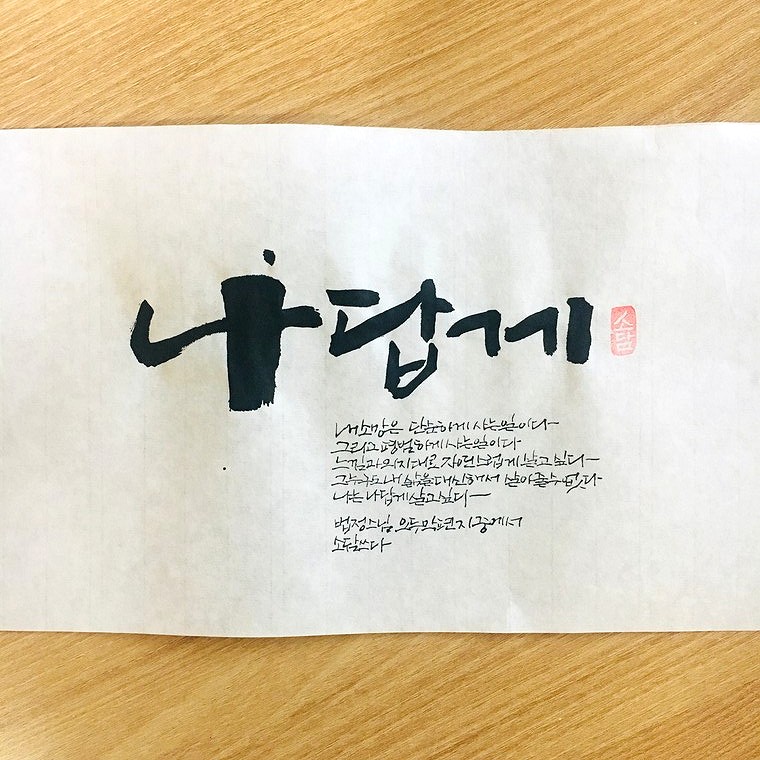 나답게
소담
내 소망은 단순하게 사는 일이다
그리고 평범하게 사는 일이다
느낌과 의지대로 자연스럽게 살고 싶다
그 누구도 내 삶을 대신해서 살아줄 수 없다
나는 나답게 살고 싶다
법정스님 오두막 편지 중에서
소담쓰다